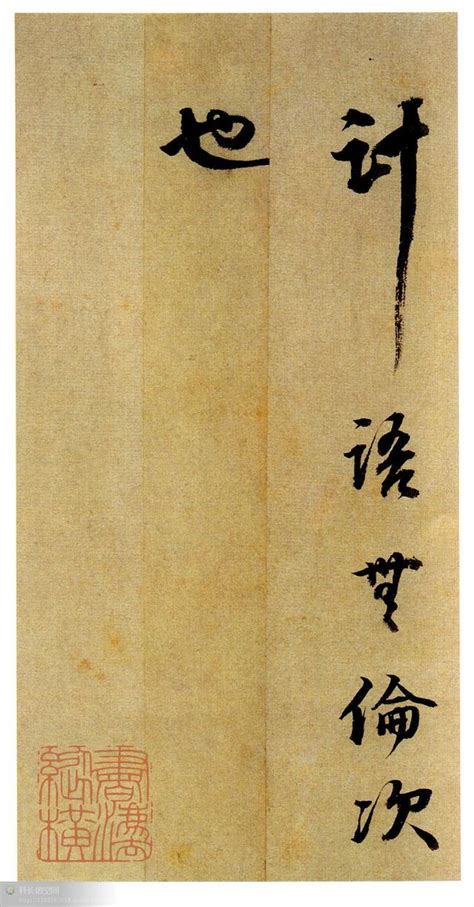 計語無倫次
也